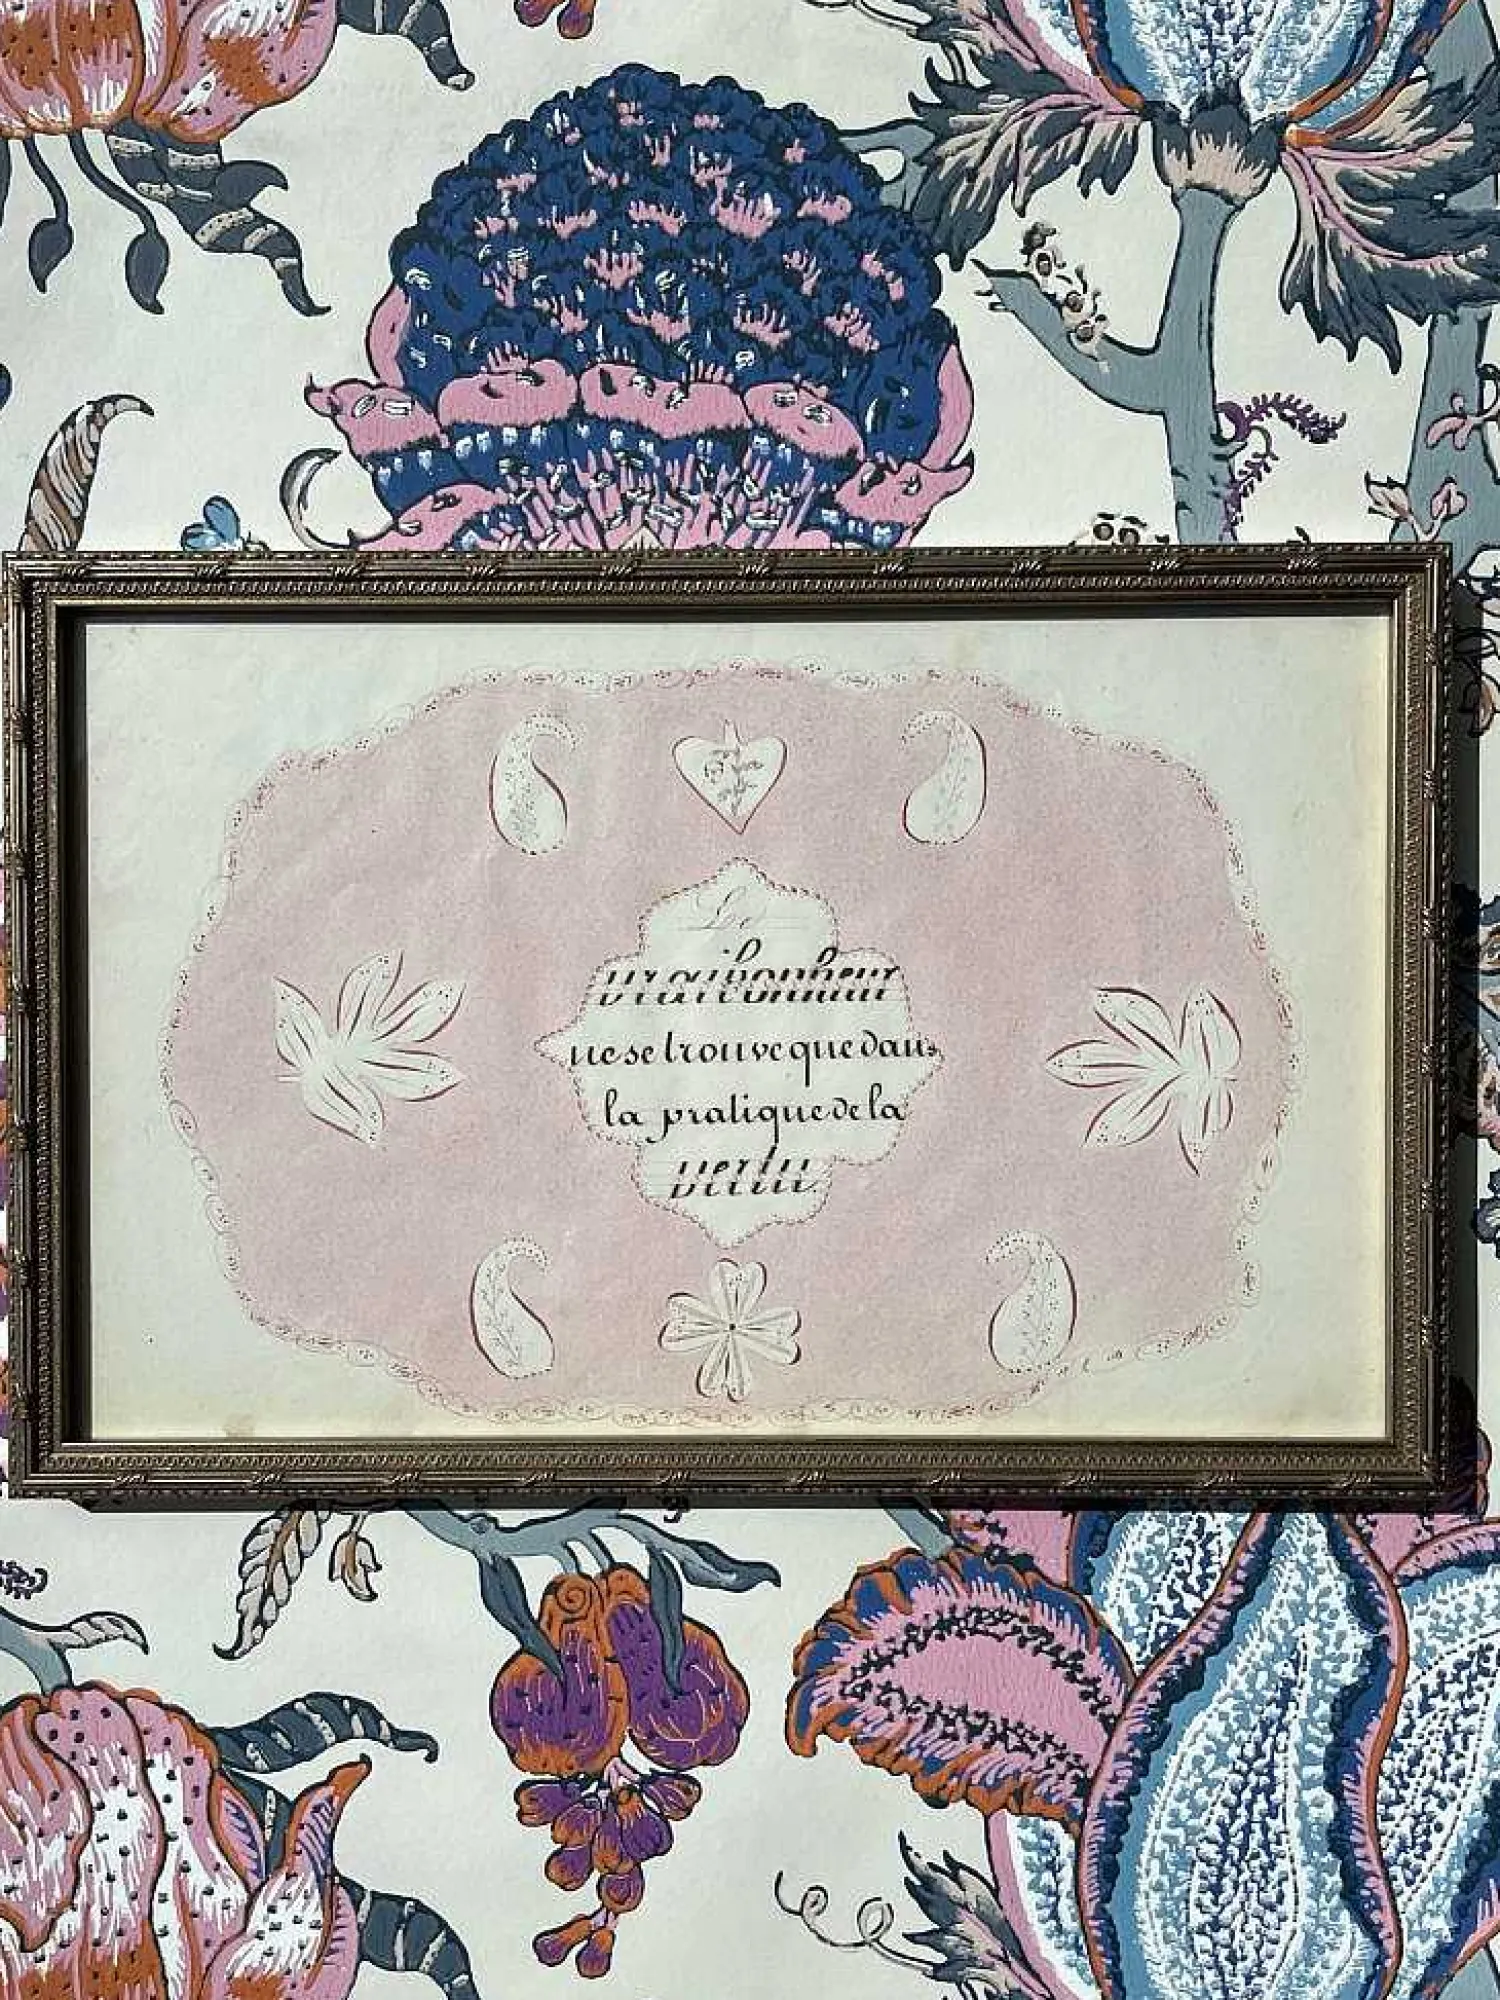 Le
vrai bonheur
ne se trouve que dans
la pratique de la
vertu